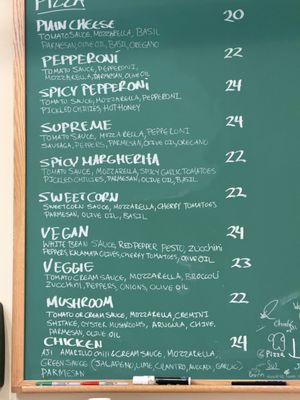 PIZZA
PLAIN CHEESE 20
TOMATO SAUCE, MOZZARELLA, BASIL
PARMESAN, OLIVE OIL, BASIL, OREGANO
PEPPERONI 22
TOMATO SAUCE, PEPPERONI,
MOZZARELLA, PARMESAN, OLIVE OIL
SPICY PEPPERONI 24
TOMATO SAUCE, MOZZARELLA, PEPPERONI,
PICKLED CHILIES, HOT HONEY
SUPREME 24
TOMATO SAUCE, MOZZARELLA, PEPPERONI
SAUSAGE, PEPPERS, PARMESAN, OLIVE OIL, OREGANO
SPICY MARGHERITA 22
TOMATO SAUCE, MOZZARELLA, SPICY GARLIC TOMATOES
PICKLED CHILIES, PARMESAN, OLIVE OIL, BASIL
SWEETCORN 22
SWEETCORN SAUCE, MOZZARELLA, CHERRY TOMATOES
PARMESAN, OLIVE OIL, BASIL
VEGAN 24
WHITE BEAN SAUCE, RED PEPPER PESTO, ZUCCHINI
PEPPERS, KALAMATA OLIVES, CHERRY TOMATOES, OLIVE OIL
VEGGIE 23
TOMATO CREAM SAUCE, MOZZARELLA, BROCCOLI
ZUCCHINI, PEPPERS, ONIONS, OLIVE OIL
MUSHROOM 22
TOMATO OR CREAM SAUCE, MOZZARELLA, CREMINI
SHITAKE, OYSTER MUSHROOMS, ARUGULA, CHIVE,
PARMESAN, OLIVE OIL
CHICKEN 24
AJI AMARILLO CHILI & CREAM SAUCE, MOZZARELLA,
GREEN SAUCE (JALAPENO, LIME, CILANTRO, AVOCADO, GARLIC)
PARMESAN
@ PIZZA